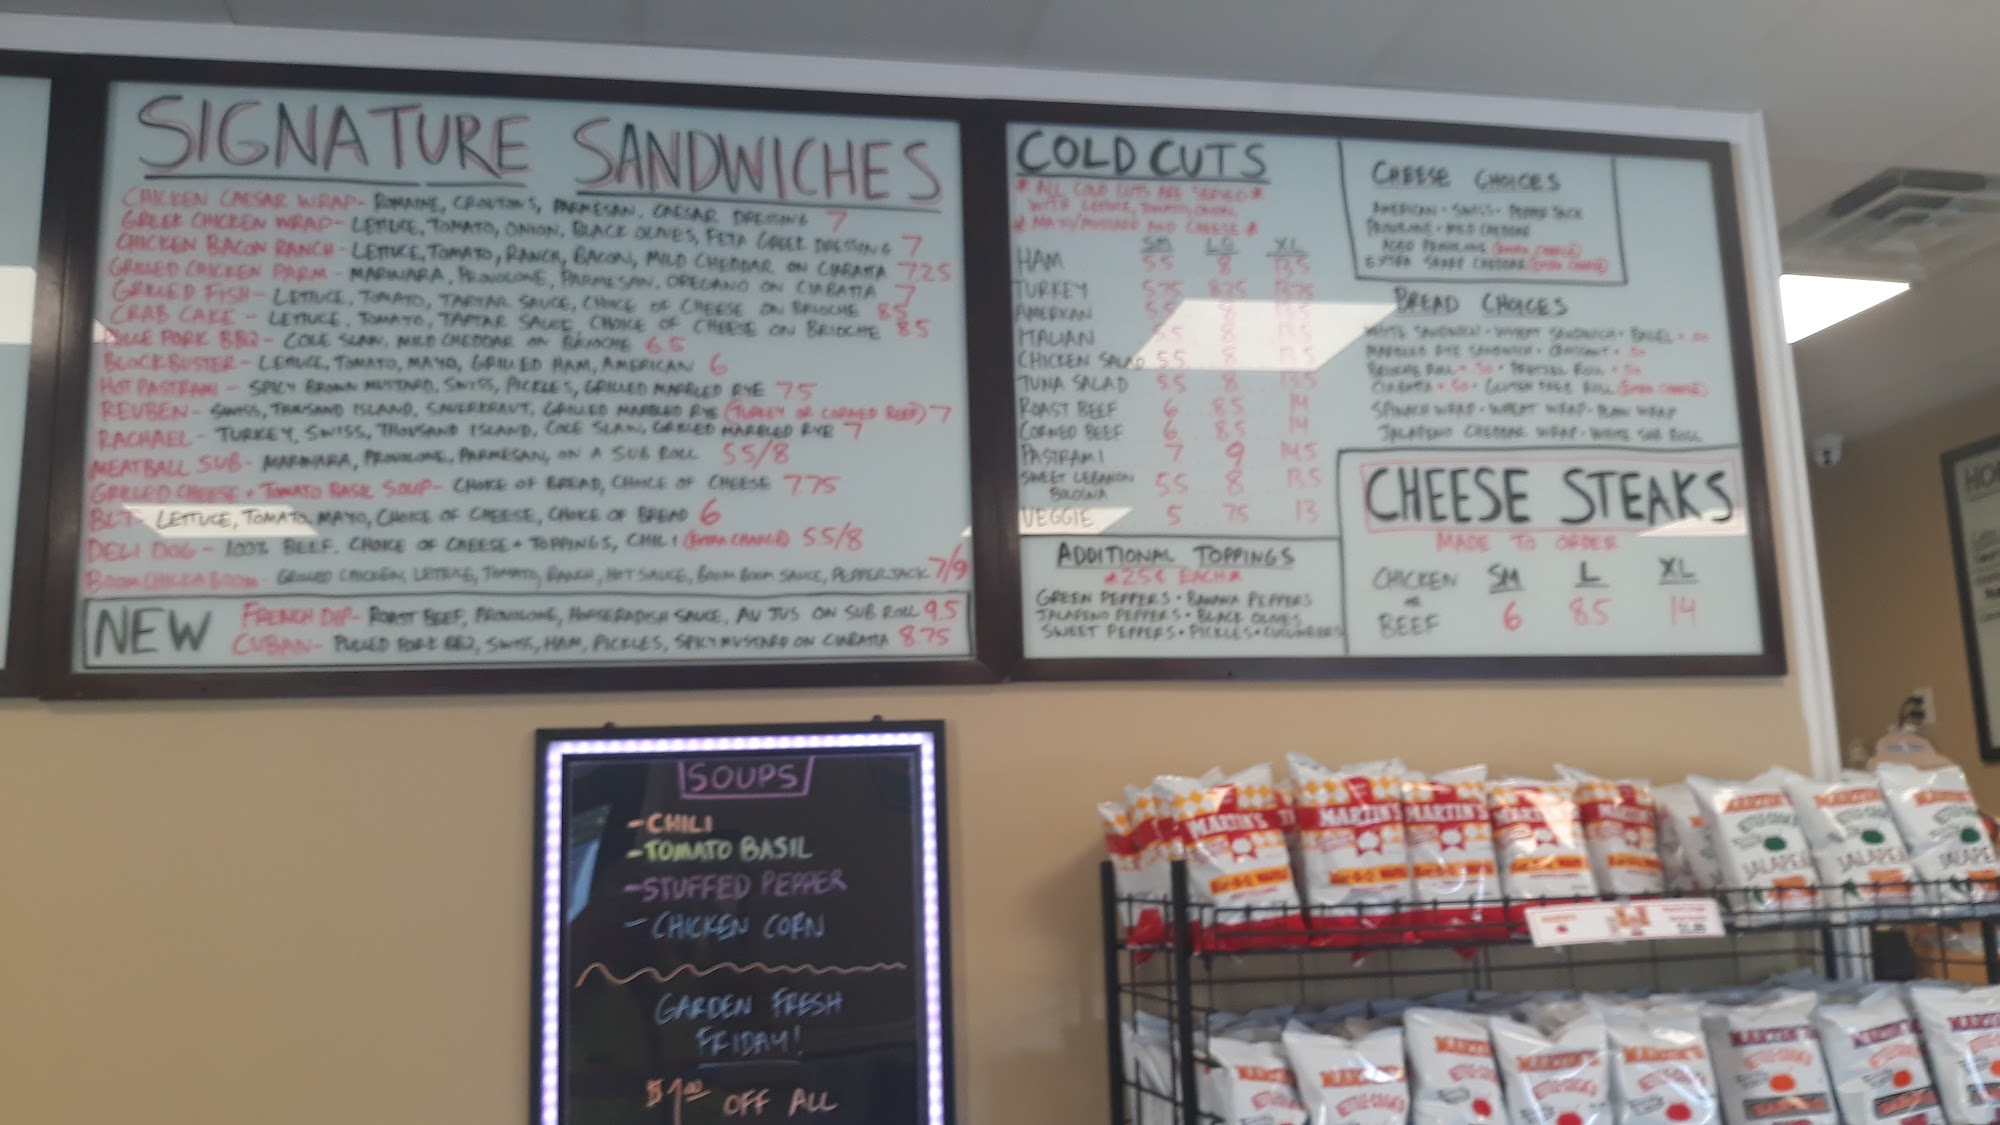 SIGNATURE SANDWICHES
CHICKEN CAESAR WRAP- ROMAINE, CROUTONS, PARMESAN, CAESAR DRESSING 7
GREEK CHICKEN WRAP- LETTUCE, TOMATO, ONION, BLACK OLIVES, FETA GREEK DRESSING 7
CHICKEN BACON RANCH- LETTUCE, TOMATO, RANCH, BACON, MILD CHEDDAR ON CIABATTA 725
GRILLED CHICKEN PARM - MARINARA, PROVOLONE, PARMESAN, OREGANO ON CIABATTA 7
GRILLED FISH- LETTUCE, TOMATO, TARTAR SAUCE, CHOICE OF CHEESE ON BRIOCHE 85
CRAB CAKE - LETTUCE, TOMATO, TARTAR SAUCE, CHOICE OF CHEESE ON BRIOCHE 8.5
PORK BBQ- COLE SLAW, MILD CHEDDAR ON BRIOCHE 6.5
BLOCKBUSTER- LETTUCE, TOMATO, MAYO, GRILLED HAM, AMERICAN 6
HOT PASTRAMI - SPICY BROWN MUSTARD, SWISS, PICKLES, GRILLED MARBLED RYE 75
REUBEN- SWISS, THOUSAND ISLAND, SAUERKRAUT, GRILLED MARBLED RYE (TURKEY OR CORNED BEEF) 7
RACHAEL - TURKEY, SWISS, THOUSAND ISLAND, COLE SLAW, GRILLED MARBLED RYE 7
MEATBALL SUB- MARINARA, PROVOLONE, PARMESAN, ON A SUB ROLL 55/8
GRILLED CHEESE + TOMATO BASIL SOUP- CHOICE OF BREAD, CHOICE OF CHEESE 775
BLT- LETTUCE, TOMATO, MAYO, CHOICE OF CHEESE, CHOICE OF BREAD 6
DELI DOG - 100% BEEF, CHOICE OF CHEESE + TOPPINGS, CHILI (EXTRA CHARGE) 55/8
BOOM CHICKA BOOM- GRILLED CHICKEN, LETTUCE, TOMATO, RANCH, HOT SAUCE, BOOM BOOM SAUCE, PEPPERJACK 7/9
NEW
FRENCH DIP- ROAST BEEF, PROVOLONE, HORSERADISH SAUCE, AU JUS ON SUB ROLL 9.5
CUBAN- PULLED PORK BBQ, SWISS, HAM, PICKLES, SPICY MUSTARD ON CIABATTA 8.75
COLD CUTS
* ALL COLD CUTS ARE SERVED *
WITH LETTUCE, TOMATO, ONION
* MAYO/MUSTARD AND CHEESE *
SM LG XL
HAM 55 8 135
TURKEY 575 825 1375
AMERICAN 55 8 135
ITALIAN 55 8 135
CHICKEN SALAD 55 8 135
TUNA SALAD 55 8 135
ROAST BEEF 6 85 14
CORNED BEEF 6 85 14
PASTRAMI 7 9 145
SWEET LEBANON
BOLOGNA 55 8 135
VEGGIE 5 75 13
ADDITIONAL TOPPINGS
*25¢ EACH*
GREEN PEPPERS • BANANA PEPPERS
JALAPENO PEPPERS • BLACK OLIVES
SWEET PEPPERS • PICKLES • CUCUMBERS
CHEESE CHOICES
AMERICAN • SWISS • PEPPER JACK
PROVOLONE • MILD CHEDDAR
AGED PROVOLONE (EXTRA CHARGE)
EXTRA SHARP CHEDDAR (EXTRA CHARGE)
BREAD CHOICES
WHITE SANDWICH • WHEAT SANDWICH • BAGEL + .50
MARBLED RYE SANDWICH • CROISSANT + .50
BRIOCHE ROLL + .50 • PRETZEL ROLL + .50
CIABATTA + .50 • GLUTEN FREE ROLL (EXTRA CHARGE)
SPINACH WRAP • WHEAT WRAP • PLAIN WRAP
JALAPENO CHEDDAR WRAP • WHITE SUB ROLL
CHEESE STEAKS
MADE TO ORDER
SM L XL
CHICKEN
OR
BEEF 6 85 14
SOUPS
-CHILI
-TOMATO BASIL
-STUFFED PEPPER
- CHICKEN CORN
GARDEN FRESH
FRIDAY!
$1.00 OFF ALL
MARTIN'S
MARTIN'S
MARTIN'S
MARTIN'S
BAR-B-Q WAFFLE
KETTLE-COOK'D
JALAPEÑO